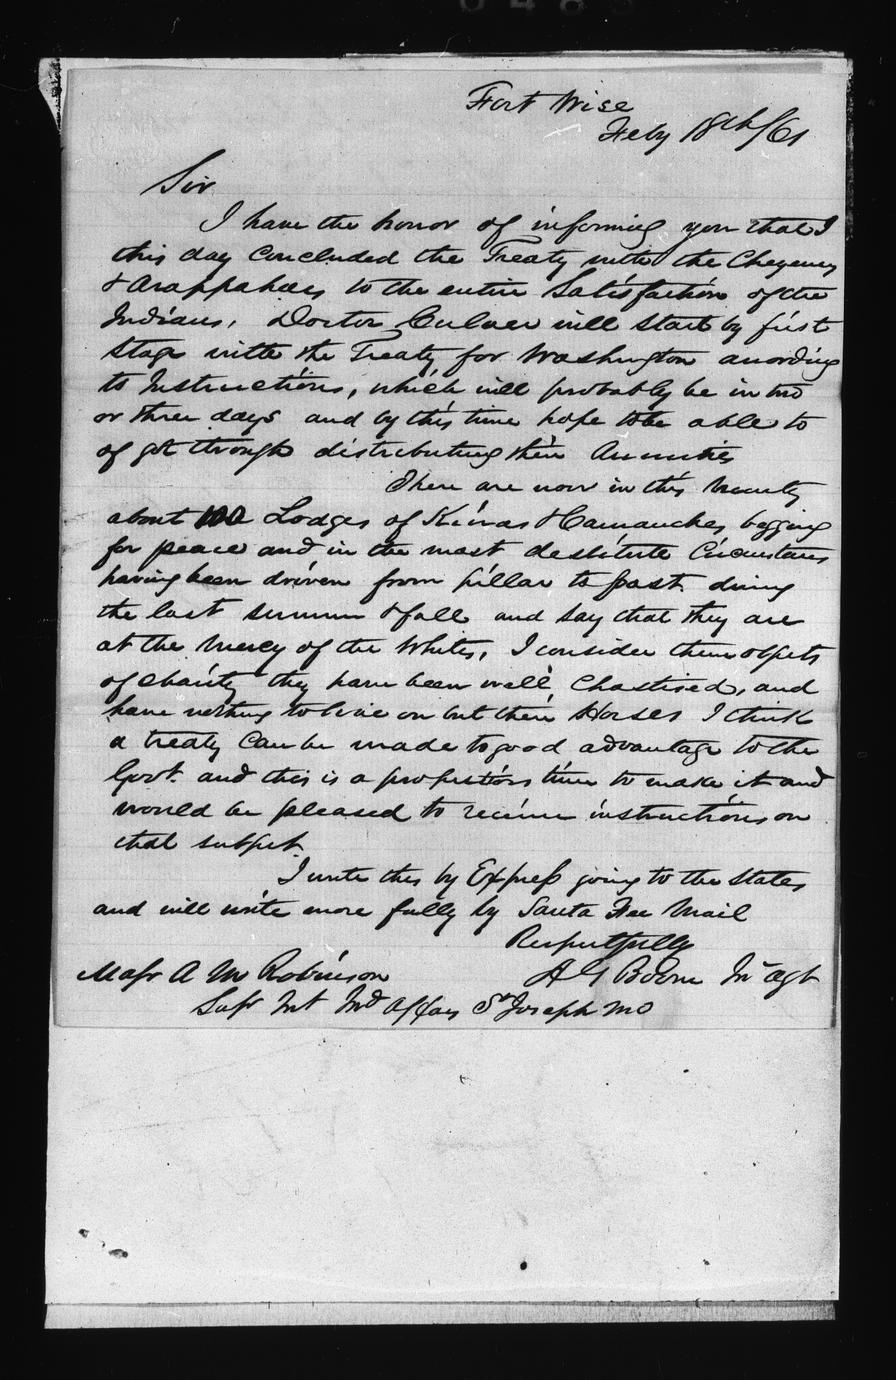 Fort Wise
Feby 18th/61
Sir
I have the honor of informing you that I
this day concluded the Treaty with the Cheyennes
& Arappahoes to the entire Satisfaction of the
Indians, Doctor Culver will start by first
Stage with the Treaty for Washington according
to Instructions, which will probably be in two
or three days and by this time hope to be able to
of got through distributing their Annuities
There are now in this vicinity
about 100 Lodges of Kiowas & Camanches begging
for peace and in the most destitute Circumstances
having been driven from pillar to post during
the last summer & fall and say that they are
at the mercy of the Whites, I consider them objects
of charity they have been well Chastised, and
have nothing to live on but their Horses I think
a treaty can be made to good advantage to the
Govt. and this is a propitious time to make it and
would be pleased to receive instructions on
that subject
I write this by Express going to the States
and will write more fully by Santa Fee Mail
Respectfully
Majr A M Robinson
A G Boone In Agt
Supt Int Ind Affairs St Joseph Mo